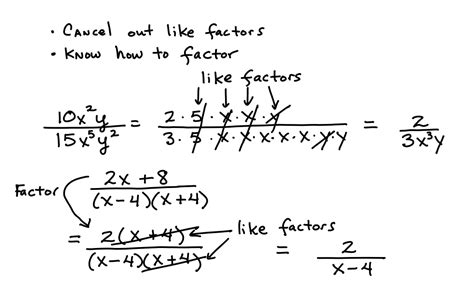 • Cancel out like factors
• Know how to factor
like factors
10x²y / 15x⁵y² = 2·5·x·x·y / 3·5·x·x·x·x·x·y·y = 2 / 3x³y
Factor 2x + 8 / (x-4)(x+4)
= 2(x+4) / (x-4)(x+4) like factors = 2 / x-4